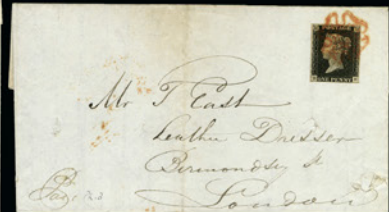 POSTAGE
ONE PENNY
Mr T East
Leather Dresser
Bermondsey St
London